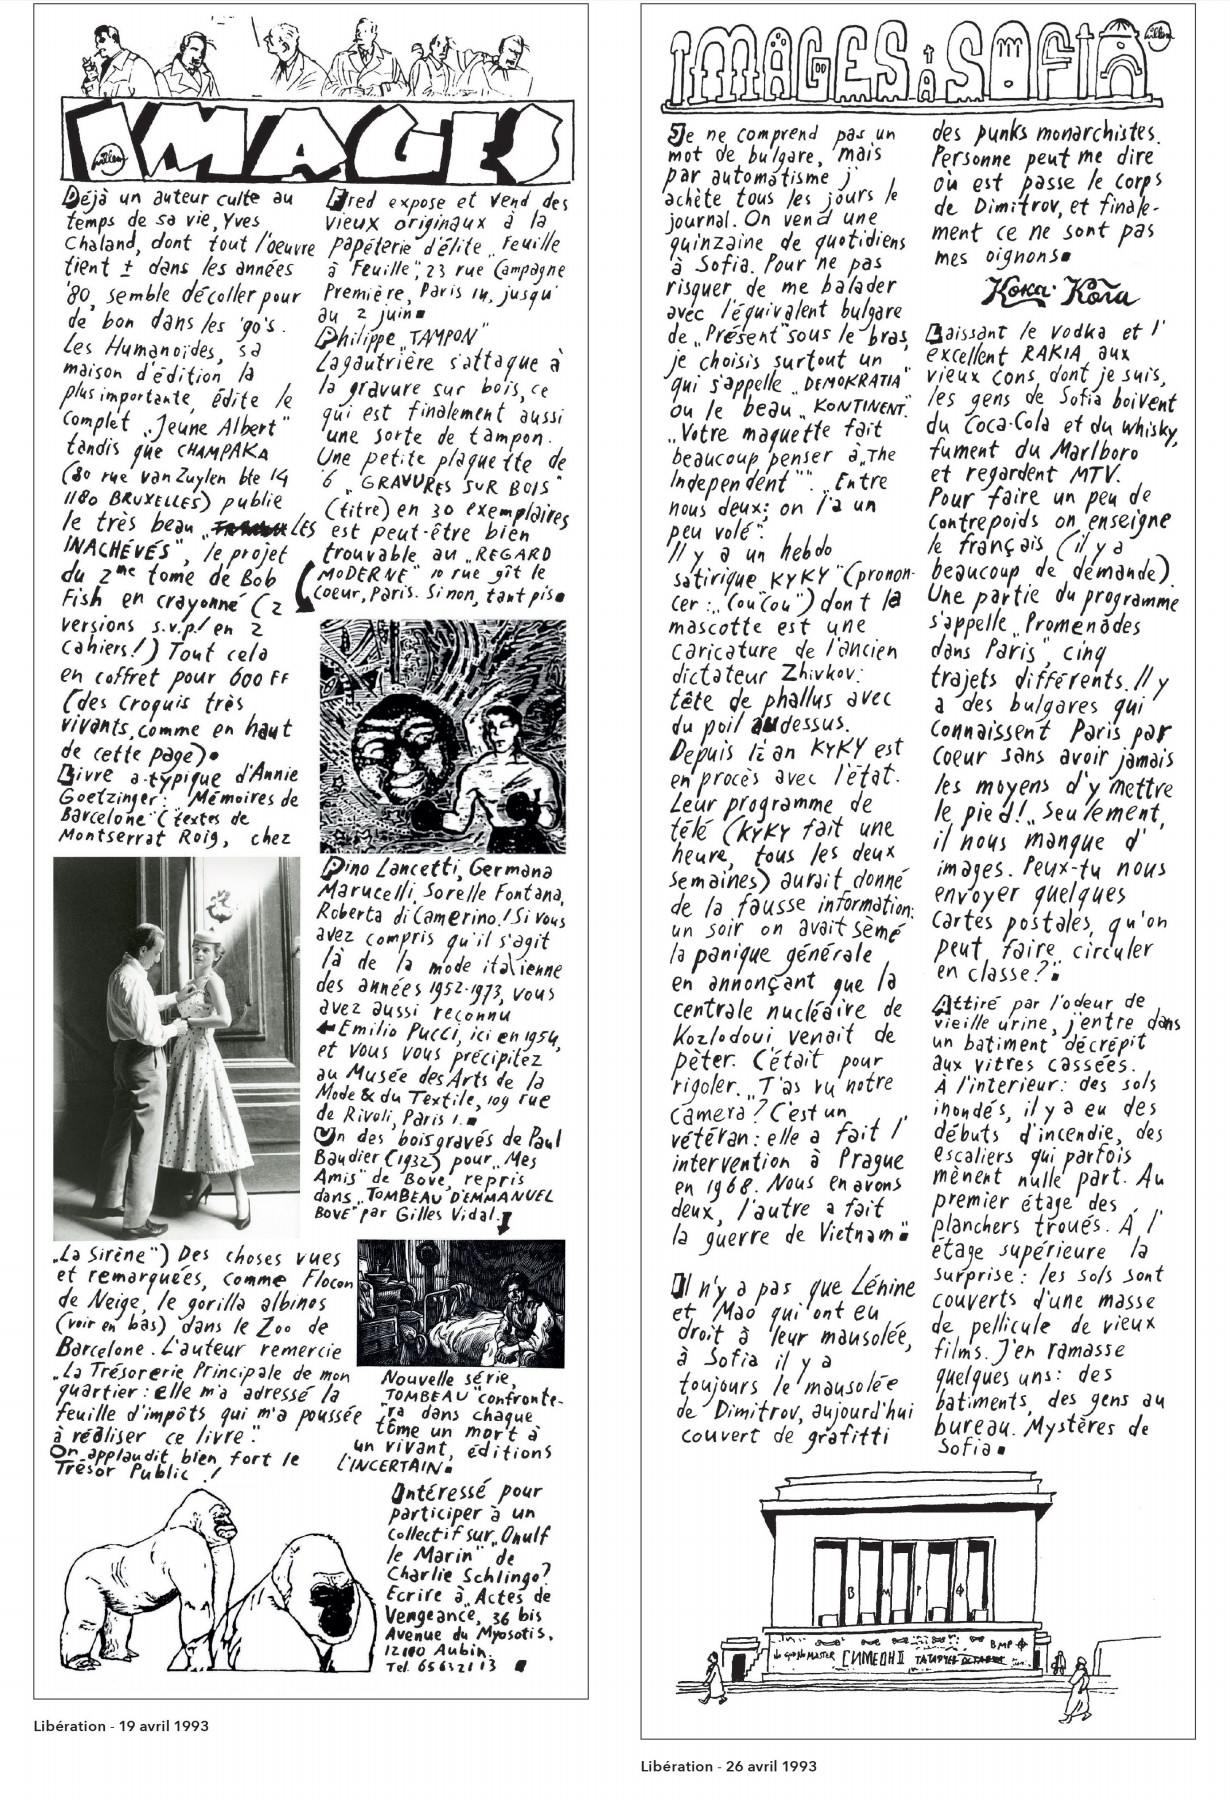 IMAGES
willem
Déjà un auteur culte au
temps de sa vie, Yves
Chaland, dont tout l'oeuvre
tient ± dans les années
'80, semble décoller pour
de bon dans les '90's.
Les Humanoïdes, sa
maison d'édition la
plus importante, édite le
complet „Jeune Albert"
tandis que CHAMPAKA
(80 rue van Zuylen bte 14
1180 BRUXELLES) publie
le très beau „LES
INACHÉVÉS", le projet
du 2me tome de Bob
Fish en crayonné (2
versions s.v.p! en 2
cahiers!) Tout cela
en coffret pour 600 FF
(des croquis très
vivants, comme en haut
de cette page).
Livre a-typique d'Annie
Goetzinger: „Mémoires de
Barcelone" (textes de
Montserrat Roig, chez
„La Sirène") Des choses vues
et remarquées, comme Flocon
de Neige, le gorilla albinos
(voir en bas) dans le Zoo de
Barcelone. L'auteur remercie
„La Trésorerie Principale de mon
quartier: elle m'a adressé la
feuille d'impôts qui m'a poussée
à réaliser ce livre".
On applaudit bien fort le
Trésor Public!
Fred expose et vend des
vieux originaux à la
papéterie d'élite „Feuille
à Feuille", 23 rue Campagne
Première, Paris 14, jusqu'
au 2 juin
Philippe „TAMPON"
Lagautrière s'attaque à
la gravure sur bois, ce
qui est finalement aussi
une sorte de tampon.
Une petite plaquette de
6 „GRAVURES SUR BOIS"
(titre) en 30 exemplaires
est peut-être bien
trouvable au „REGARD
MODERNE" 10 rue gît le
coeur, Paris. Sinon, tant pis
Pino Lancetti, Germana
Marucelli, Sorelle Fontana,
Roberta di Camerino! Si vous
avez compris qu'il s'agit
là de la mode italienne
des années 1952-1973, vous
avez aussi reconnu
Emilio Pucci, ici en 1954,
et vous vous précipitez
au Musée des Arts de la
Mode & du Textile, 109 rue
de Rivoli, Paris 1.
Un des bois gravés de Paul
Baudier (1932) pour „Mes
Amis" de Bove, repris
dans „TOMBEAU D'EMMANUEL
BOVE" par Gilles Vidal.
Nouvelle série,
„TOMBEAU" confronte-
ra dans chaque
tôme un mort à
un vivant, éditions
L'INCERTAIN.
Intéressé pour
participer à un
collectif sur „Onulf
le Marin" de
Charlie Schlingo?
Ecrire à „Actes de
Vengeance, 36 bis
Avenue du Myosotis,
12100 Aubin.
Tel. 65632113
Libération - 19 avril 1993
IMAGES À SOFIA
willem
Je ne comprend pas un
mot de bulgare, mais
par automatisme j'
achète tous les jours le
journal. On vend une
quinzaine de quotidiens
à Sofia. Pour ne pas
risquer de me balader
avec l'équivalent bulgare
de „Présent" sous le bras,
je choisis surtout un
qui s'appelle „DEMOKRATIA"
ou le beau „KONTINENT".
„Votre maquette fait
beaucoup penser à „The
Independent"". „Entre
nous deux: on l'a un
peu volé".
Il y a un hebdo
satirique „KYKY" (pronon-
cer: „Cou Cou") dont la
mascotte est une
caricature de l'ancien
dictateur Zhivkov:
tête de phallus avec
du poil au dessus.
Depuis an KYKY est
en procès avec l'état.
Leur programme de
télé (KYKY fait une
heure, tous les deux
semaines) aurait donné
de la fausse information:
un soir on avait semé
la panique générale
en annonçant que la
centrale nucléaire de
Kozlodoui venait de
pèter. C'était pour
rigoler. „T'as vu notre
camera? C'est un
vétéran: elle a fait l'
intervention à Prague
en 1968. Nous en avons
deux, l'autre a fait
la guerre de Vietnam"
Il n'y a pas que Lénine
et Mao qui ont eu
droit à leur mausolée,
à Sofia il y a
toujours le mausolée
de Dimitrov, aujourd'hui
couvert de grafitti
des punks monarchistes.
Personne peut me dire
où est passe le corps
de Dimitrov, et finale-
ment ce ne sont pas
mes oignons
Кока-Кола
Laissant le vodka et l'
excellent RAKIA aux
vieux cons, dont je suis,
les gens de Sofia boivent
du Coca-Cola et du whisky,
fument du Marlboro
et regardent MTV.
Pour faire un peu de
contrepoids on enseigne
le français, (il y a
beaucoup de demande).
Une partie du programme
s'appelle „Promenades
dans Paris", cinq
trajets différents. Il y
a des bulgares qui
connaissent Paris par
coeur sans avoir jamais
les moyens d'y mettre
le pied! „Seulement,
il nous manque d'
images. Peux-tu nous
envoyer quelques
cartes postales, qu'on
peut faire circuler
en classe?".
Attiré par l'odeur de
vieille urine, j'entre dans
un batiment décrépit
aux vitres cassées.
À l'interieur: des sols
inondés, il y a eu des
débuts d'incendie, des
escaliers qui parfois
mènent nulle part. Au
premier étage des
planchers troués. À l'
étage supérieure la
surprise: les sols sont
couverts d'une masse
de pellicule de vieux
films. J'en ramasse
quelques uns: des
batiments, des gens au
bureau. Mystères de
Sofia
В М Р
BMP
СИМЕОН II
Libération - 26 avril 1993